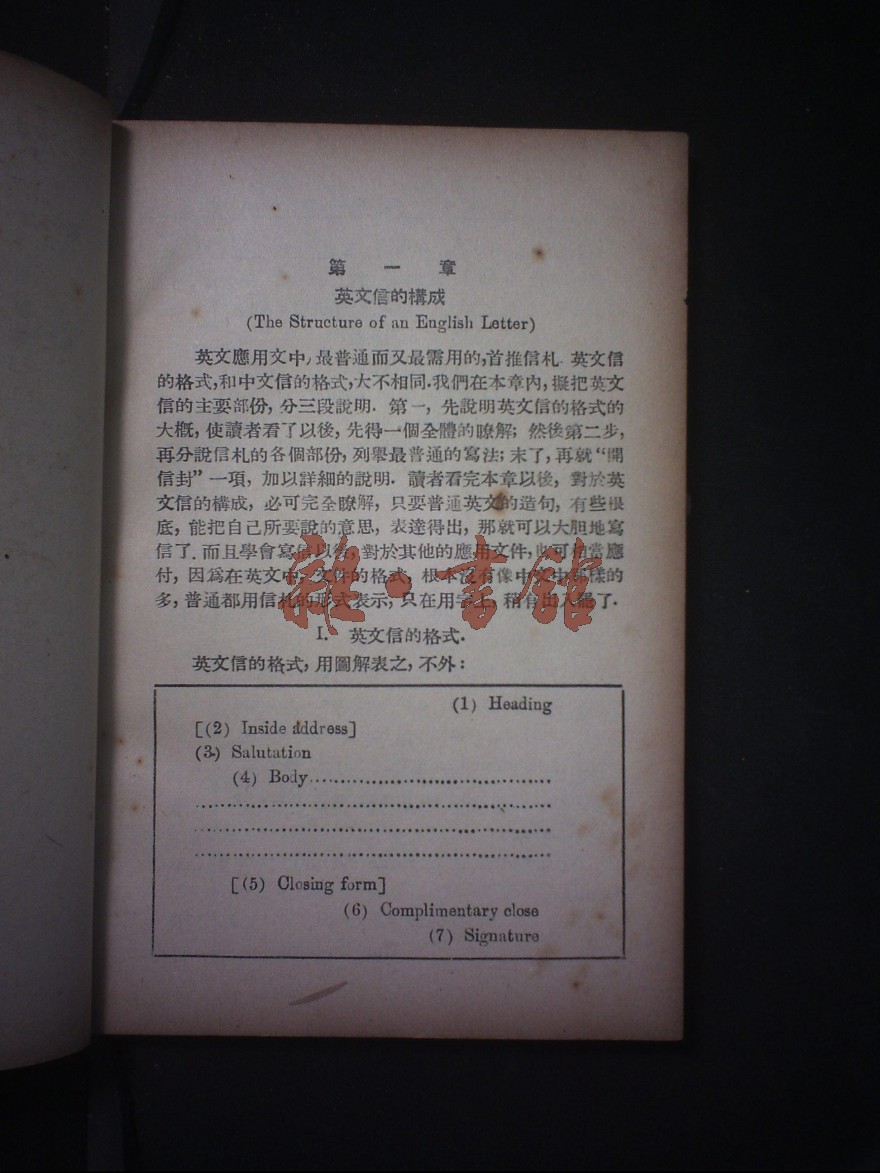 第一章
英文信的構成
(The Structure of an English Letter)
英文應用文中,最普通而又最需用的,首推信札.英文信
的格式,和中文信的格式,大不相同.我們在本章內,擬把英文
信的主要部份,分三段說明.第一,先說明英文信的格式的
大概,使讀者看了以後,先得一個全體的瞭解;然後第二步,
再分說信札的各個部份,列舉最普通的寫法;末了,再就“開
信封”一項,加以詳細的說明.讀者看完本章以後,對於英
文信的構成,必可完全瞭解,只要普通英文的造句,有些根
底,能把自己所要說的意思,表達得出,那就可以大胆地寫
信了.而且學會寫信以後,對於其他的應用文件,也可相當應
付,因爲在英文中,文件的格式,根本沒有像中文中那樣的
多,普通都用信札的形式表示,只在用字上,稍有出入罷了.
雜·書館
I. 英文信的格式.
英文信的格式,用圖解表之,不外:
(1) Heading
[(2) Inside address]
(3) Salutation
(4) Body
[(5) Closing form]
(6) Complimentary close
(7) Signature